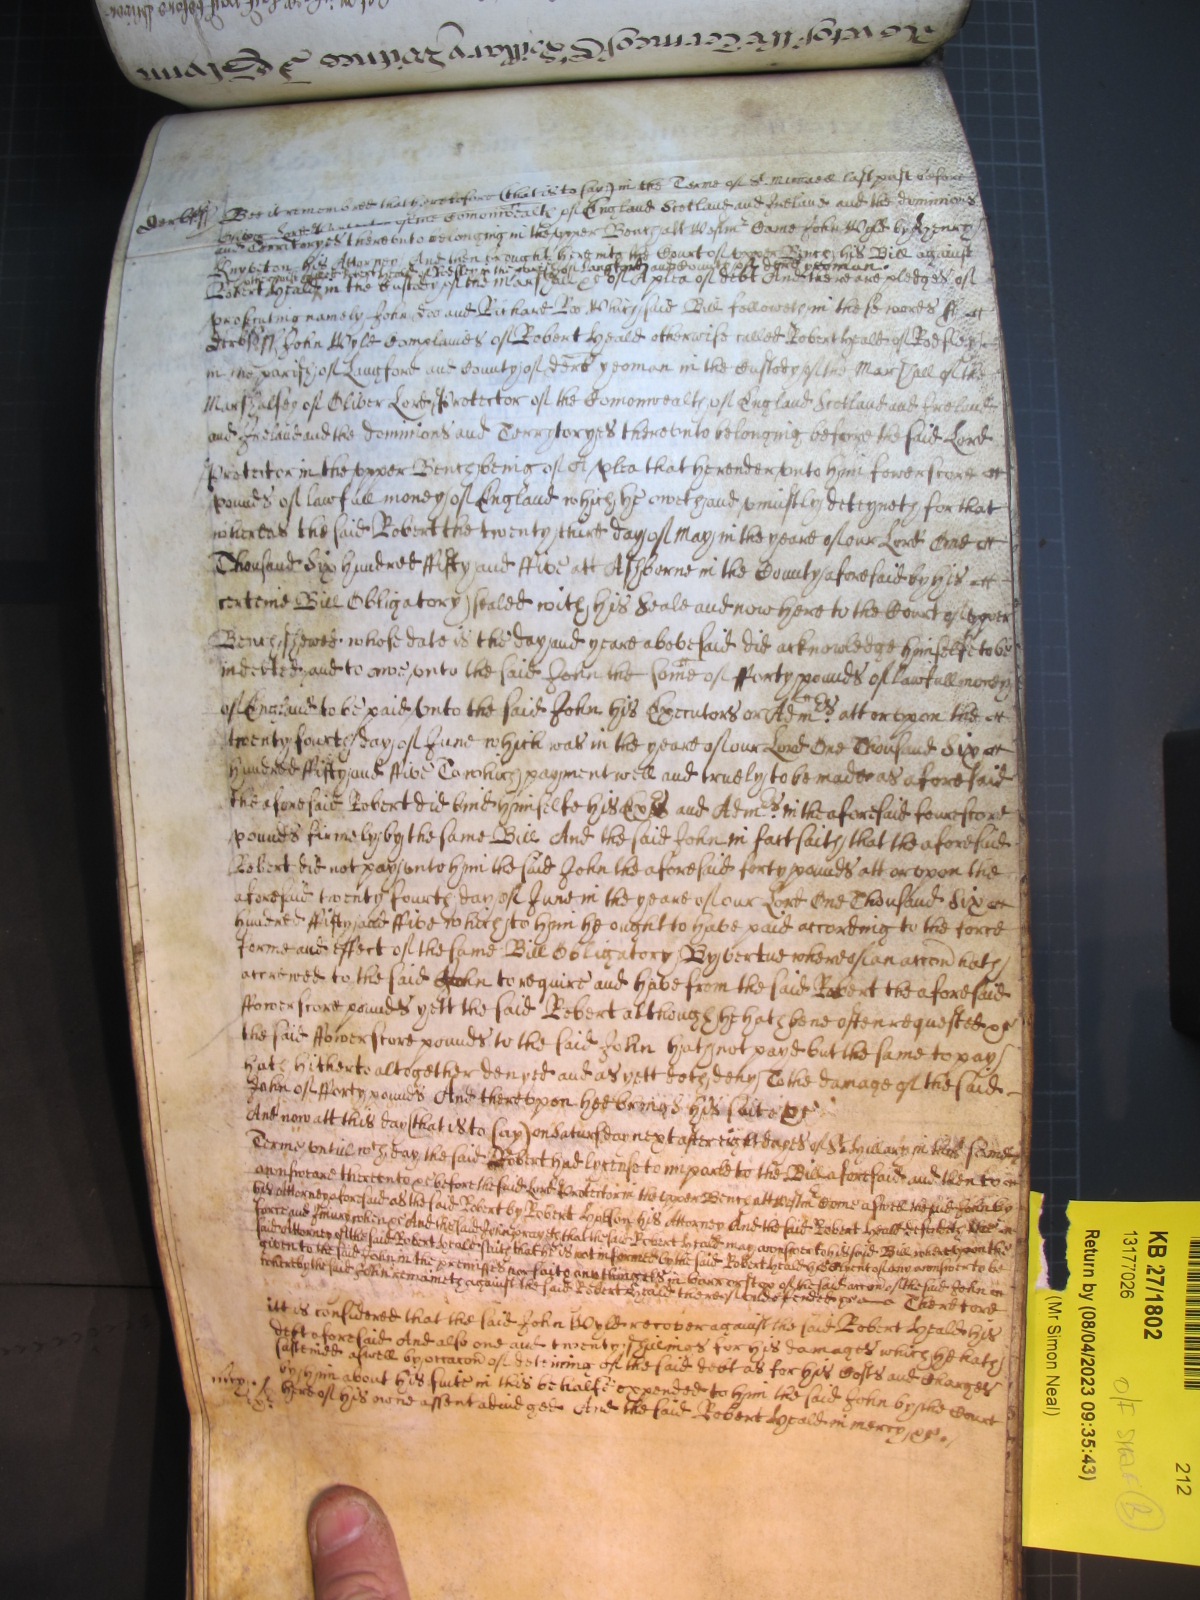 Derb ss Bee it remembred that heretofore (that is to say) in the Terme of St. Michael last past before
Oliver Lord Protector of the Comonwealth of England Scotland and Ireland and the dominions
and Territoryes thereunto belonging in the upper Bench att Westmr Came John Wyld by Henry
his Attorney And then brought here into the Court of upper Bench his Bill against
in the parish of Langford and County of derb yeoman
Robert Heald in the Custody of the Marshall &c of A plea of debt And there are pledges of
prosecuting namely John Doo and Richard Roo Which said Bill followeth in these words ss
Derb ss John Wyld Complaines of Robert Heald otherwise called Robert Heald of Rodsley
in the parish of Langford and County of derb yeoman in the Custody of the Marshall of the
Marshalsey of Oliver Lord Protector of the Comonwealth of England Scotland and Ireland
and Ireland and the dominions and Territoryes thereunto belonging before the said Lord
Protector in the upper Bench being of A plea that he render unto him fowerscore
pounds of lawfull money of England which he oweth and uniustly deteyneth for that
whereas the said Robert the twenty third day of May in the yeare of our Lord One
Thousand Six hundred ffifty and ffive att Ashborne in the County aforesaid by his
certeine Bill Obligatory sealed with his Seale and now here to the Court of upper
Bench shewed whose date is the day and yeare abovesaid did acknowledge himselfe to be
indebted and to owe unto the said John the some of fforty pounds of lawfull money
of England to be paid unto the said John his Executors or Admrs att or upon the
twenty fourth day of June which was in the yeare of our Lord One Thousand Six
hundred ffifty and ffive To which payment well and truely to be made as aforesaid
the aforesaid Robert did bind himselfe his Exrs and Admrs in the aforesaid fourescore
pounds firmely by the same Bill And the said John in fact saith that the aforesaid
Robert did not pay unto him the said John the aforesaid forty pounds att or upon the
aforesaid twenty fourth day of June in the yeare of our Lord One Thousand Six
hundred ffifty and ffive which to him he ought to have paid according to the force
forme and effect of the same Bill Obligatory By vertue whereof an accon hath
accrewed to the said John to require and have from the said Robert the aforesaid
ffowerscore pounds yett the said Robert although he hath bene often requested &c
the said ffowerscore pounds to the said John hath not payd but the same to pay
hath hitherto altogether denyed and as yett doth deny To the damage of the said
John of fforty pounds And thereupon hee brings his suite &c
And now att this day (that is to say) on Saturday next after eight dayes of St. Hillary in this same
Terme untill wch day the said Robert had lycense to imparle to the Bill aforesaid and then to
answeare thereunto &c before the said Lord Protector in the upper Bench att Westmr Come aswell the said John by
his attorney aforesaid as the said Robert by Robert Hobson his Attorney And the said Robert Heald defends the
force and Iniury when &c And the said John prayeth that the said Robert Heald may answer to his said Bill whereupon the
said Attorney of the said Robert Heald saith that he is not informed by the said Robert Heald his Clyent of any answer to be
given to the said John in the premisses nor saith any thinge in barr or stop of the said accon of the said John
whereby the said John remaineth against the said Robert Heald thereof undefended &c Therefore
itt is considered that the said John Wyld recover against the said Robert Heald his
debt aforesaid And also one and twenty shillings for his damages which he hath
susteined aswell by occacon of deteining of the said debt as for his Costs and Charges
by him about his suite in this behalfe expended to him the said John by the Court
mercy here of his owne assent adiudged And the said Robert Heald in mercy &c.
KB 27/1802
13177026
Return by (08/04/2023 09:35:43)
(Mr Simon Neal)
212